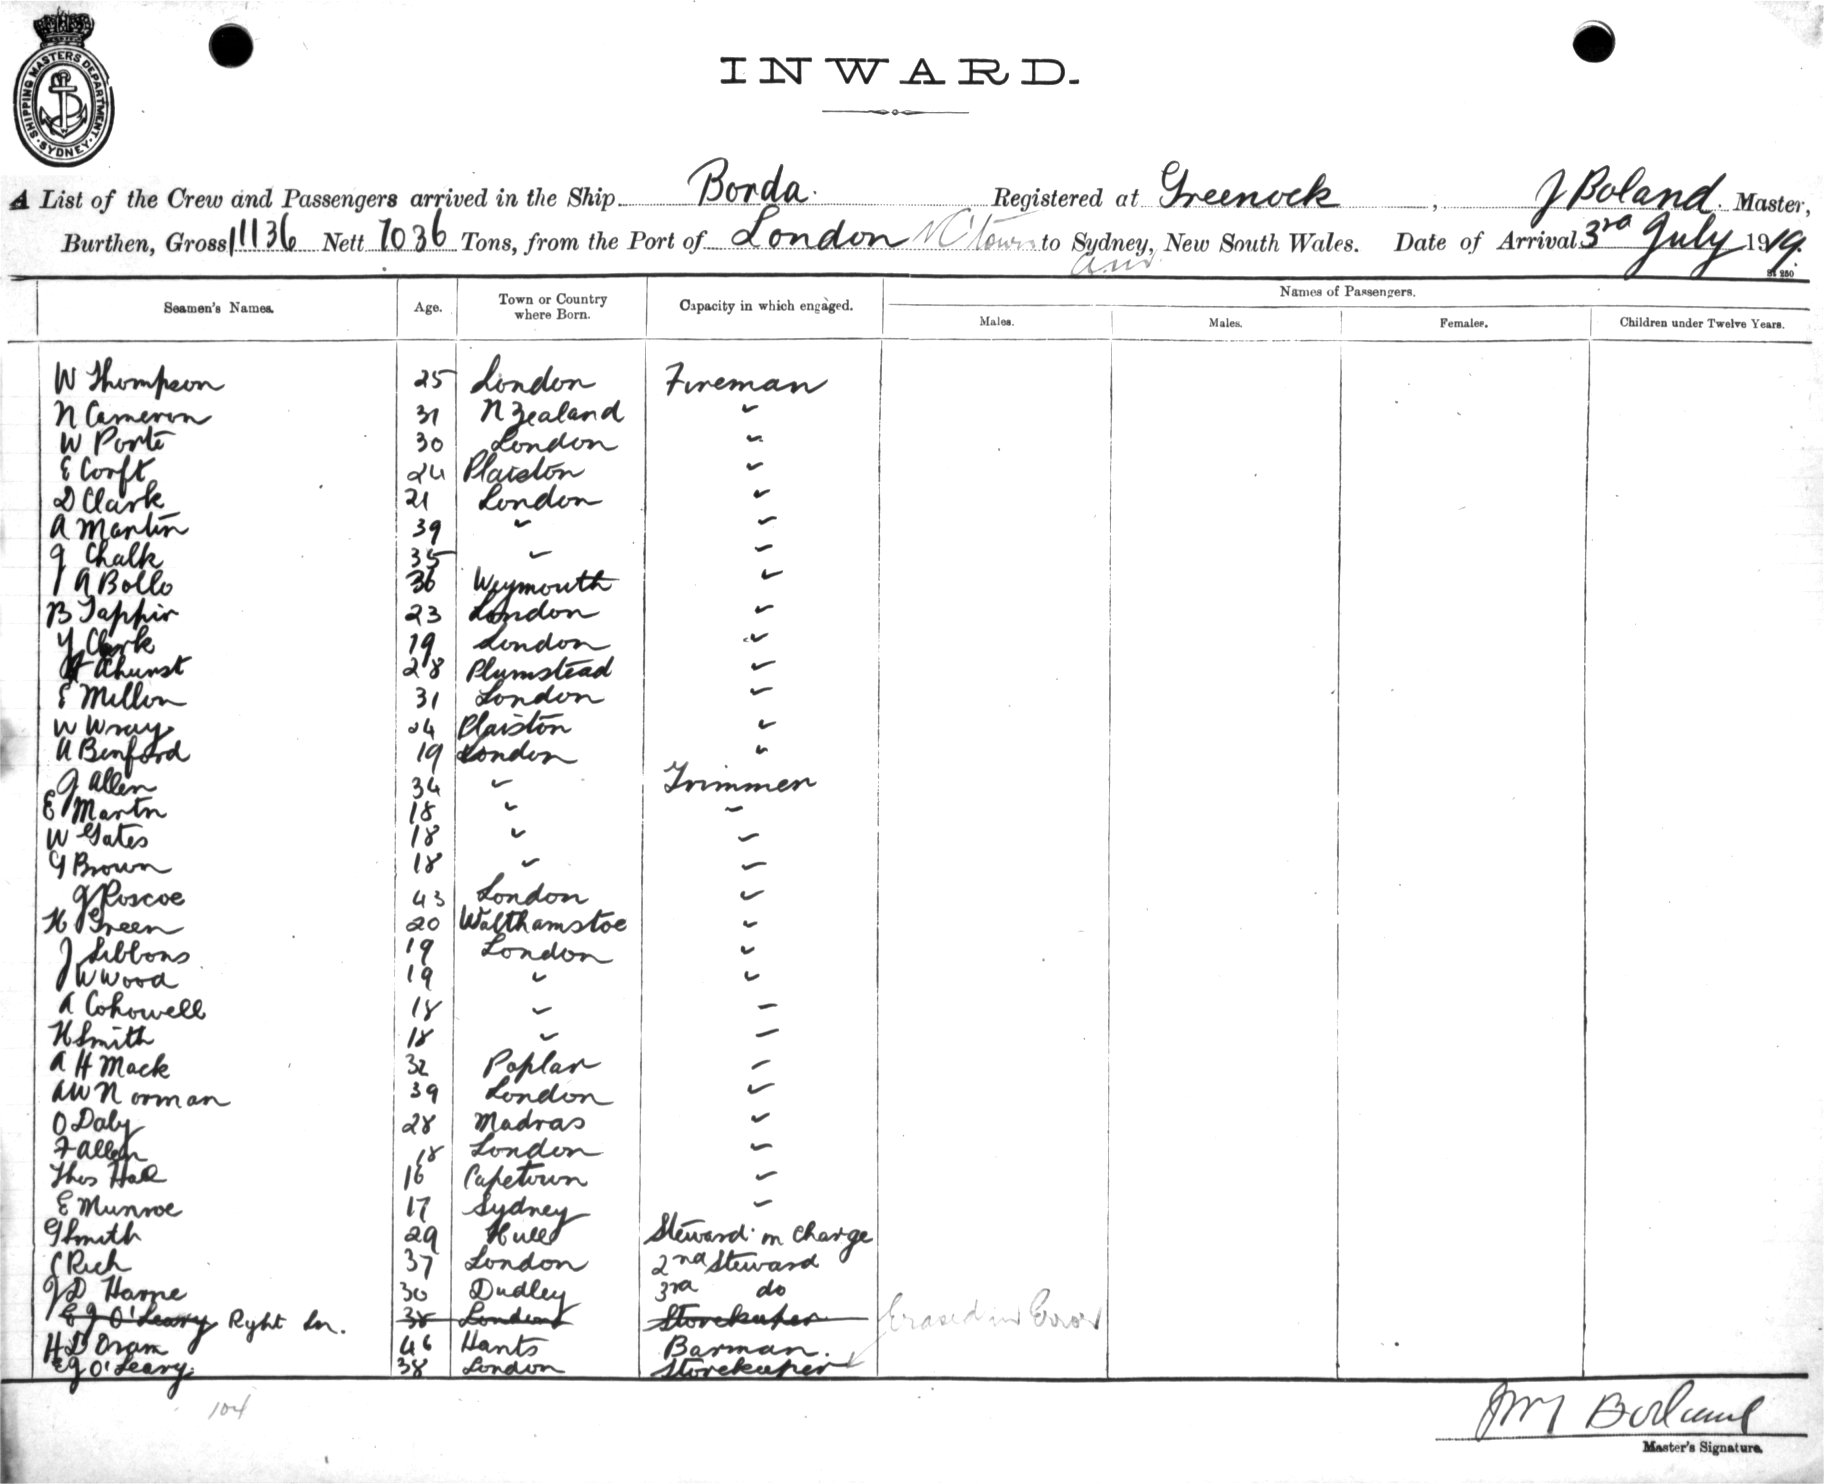 SHIPPING MASTERS DEPARTMENT
SYDNEY
INWARD.
A List of the Crew and Passengers arrived in the Ship Borda. Registered at Greenock, J Boland. Master,
Burthen, Gross 11136 Nett 7036 Tons, from the Port of London C'town to Sydney, New South Wales. Date of Arrival 3rd July 1919.
Seamen's Names. Age. Town or Country where Born. Capacity in which engaged. Names of Passengers.
Males. Males. Females. Children under Twelve Years.
W Thompson 25 London Fireman
N Cameron 31 N Zealand "
W Porte 30 London "
E Corft 24 Plaiston "
D Clark 21 London "
A Martin 39 " "
G Chalk 35 " "
A Bollo 36 Weymouth "
B Tappin 23 London "
Y Clark 19 London "
H Ahurst 28 Plumstead "
E Millon 31 London "
W Wray 24 Plaiston "
A Benford 19 London "
G Allen 34 " Trimmer
E Martn 18 " "
W Gates 18 " "
G Brown 18 " "
G Roscoe 43 London "
H Green 20 Walthamstoe "
J Sibbons 19 London "
J W Wood 19 " "
A Cohowell 18 " "
H Smith 18 " "
A H Mack 32 Poplar "
AW Norman 39 London "
O Daly 28 Madras "
F Allen 18 London "
Thos Hall 16 Capetown "
E Munroe 17 Sydney "
G Smith 29 Hull Steward in charge
C Rich 37 London 2nd Steward
J D Harne 30 Dudley 3rd do
E G O'Leary Ryht 38 London Storekeeper Erased in Error
H D Oram 46 Hants Barman.
EG O'Leary. 38 London Storekeeper
104
Master's Signature.